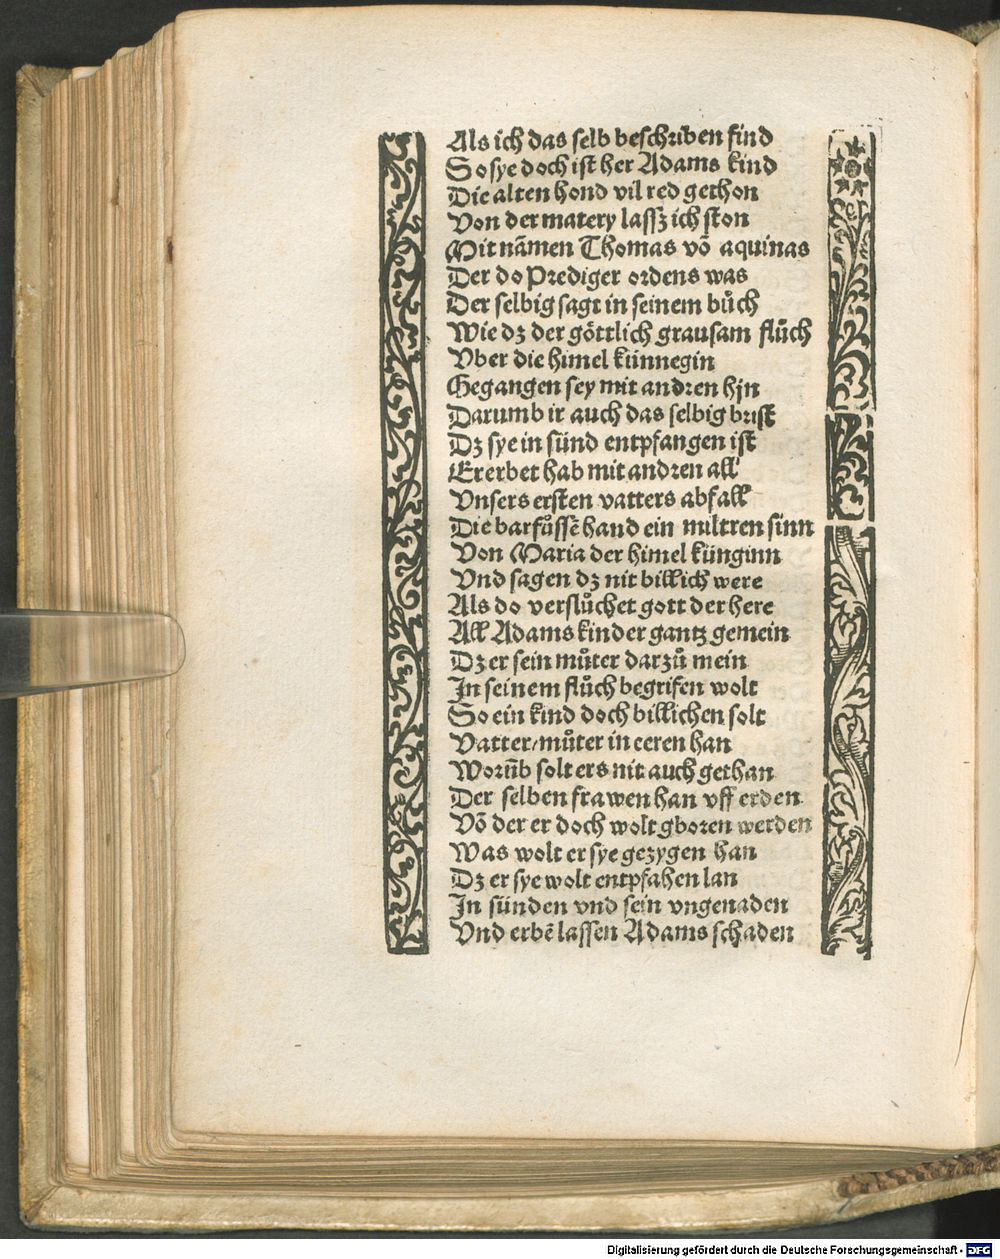 Als ich das selb beschriben find
So sye doch ist her Adams kind
Die alten hond vil red gethon
Von der matery lassz ich ston
Mit nãmen Thomas võ aquinas
Der do Prediger ordens was
Der selbig sagt in seinem bůch
Wie dz der göttlich grausam flůch
Vber die himel künnegin
Gegangen sey mit andren hjn
Darumb ir auch das selbig brist
Dz sye in sünd entpfangen ist
Ererbet hab mit andren all
Vnsers ersten vatters abfall
Die barfůssẽ hand ein miltren sinn
Von Maria der himel künginn
Vnd sagen dz nit billich were
Als do verflůchet gott der here
All Adams kinder gantz gemein
Dz er sein můter darzů mein
In seinem flůch begrifen wolt
So ein kind doch billichen solt
Vatter/můter in eeren han
Worũb solt ers nit auch gethan
Der selben frawen han vff erden
Võ der er doch wolt gboren werden
Was wolt er sye gezygen han
Dz er sye wolt entpfahen lan
In sünden vnd sein vngenaden
Vnd erbẽ lassen Adams schaden
Digitalisierung gefördert durch die Deutsche Forschungsgemeinschaft - DFG